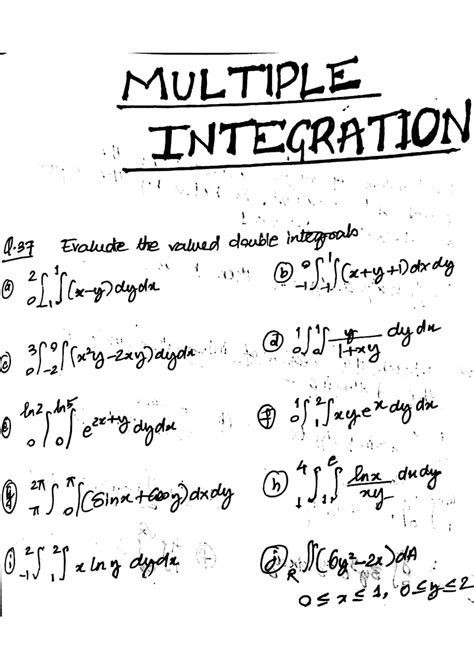 MULTIPLE
INTEGRATION
Q.37 Evaluate the valued double integrals
(a) ∫₀² ∫₋₁¹ (x-y) dy dx
(b) ∫₋₁⁰ ∫₋₁¹ (x+y+1) dx dy
(c) ∫₀³ ∫₋₂⁰ (x²y-2xy) dy dx
(d) ∫₀¹ ∫₀¹ y/(1+xy) dy dx
(e) ∫₀^ln2 ∫₀^ln5 e^(2x+y) dy dx
(f) ∫₀¹ ∫₁² xy e^x dy dx
∫_π^2π ∫₀^π (Sinx + Cosy) dx dy
(h) ∫₁⁴ ∫₁^e lnx/xy dx dy
(i) ∫₋₁² ∫₁² x ln y dy dx
(j) ∬_R (6y²-2x) dA
0 ≤ x ≤ 1, 0 ≤ y ≤ 2